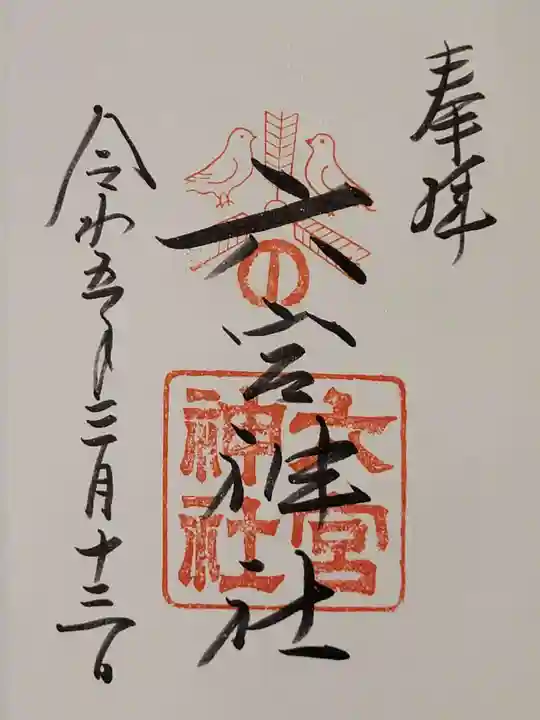 奉拝
六宮神社
六宮
神社
令和五年三月十三日